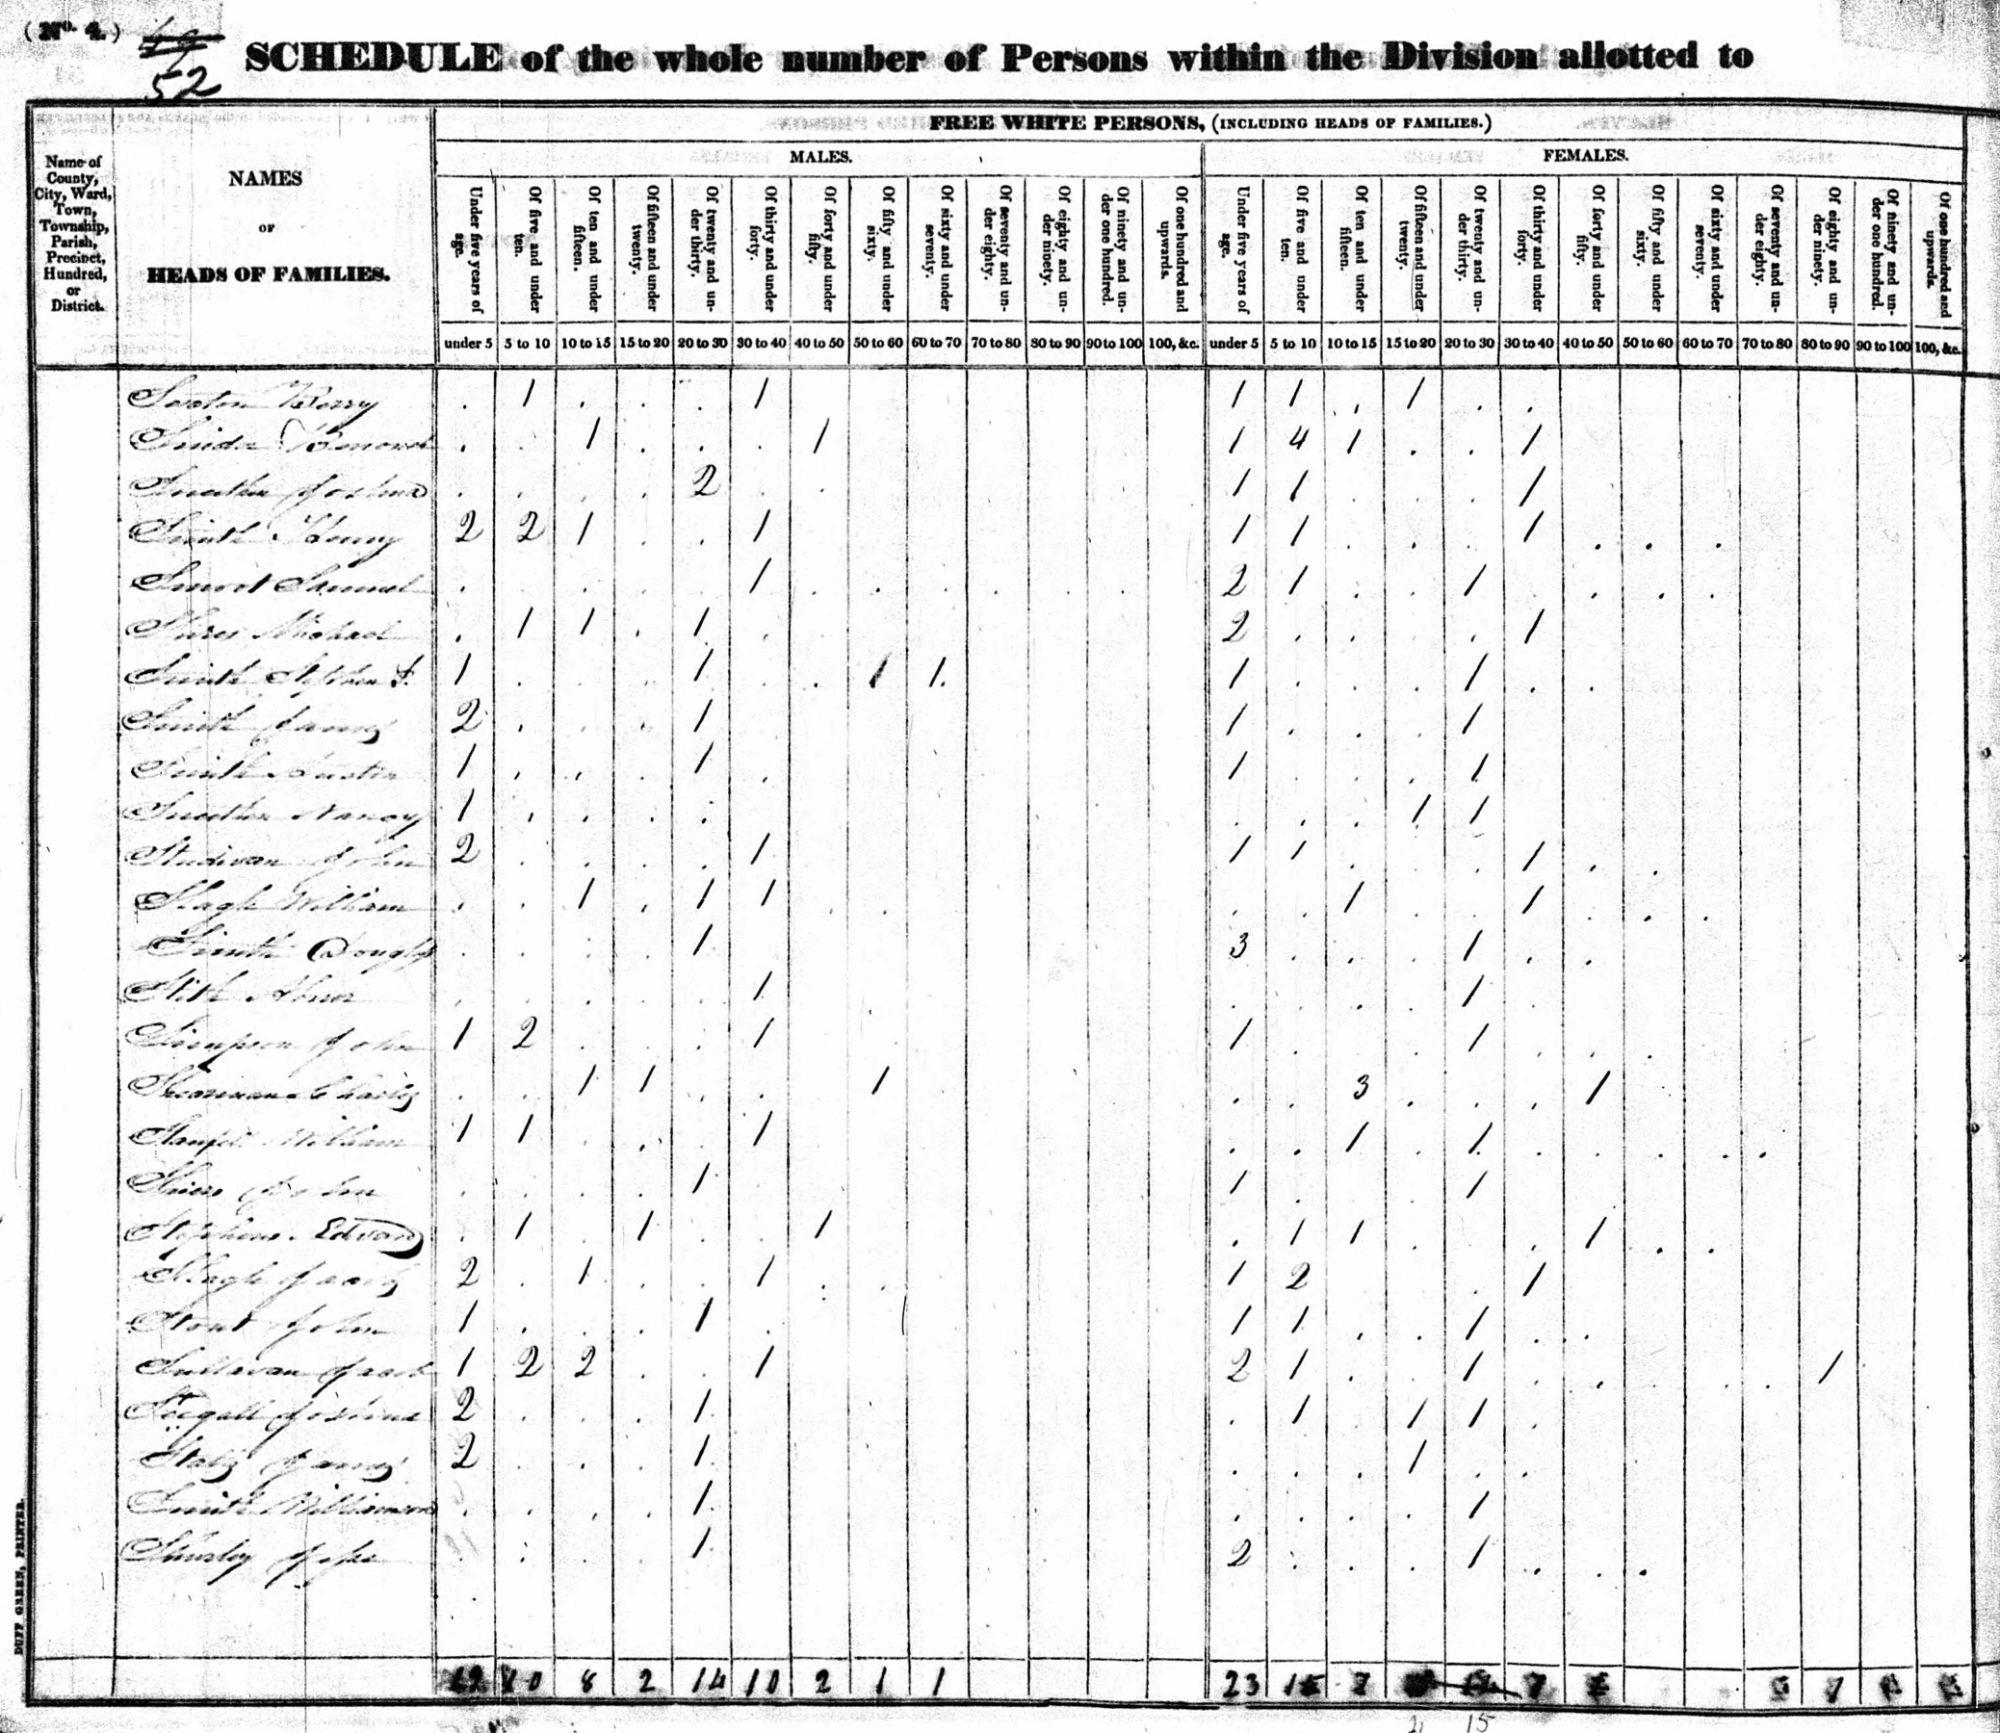 ( No. 4. )
52
SCHEDULE of the whole number of Persons within the Division allotted to
FREE WHITE PERSONS, (INCLUDING HEADS OF FAMILIES.)
MALES. FEMALES.
Name of County, City, Ward, Town, Township, Parish, Precinct, Hundred, or District.
NAMES
OF
HEADS OF FAMILIES.
Under five years of age. Of five and under ten. Of ten and under fifteen. Of fifteen and under twenty. Of twenty and under thirty. Of thirty and under forty. Of forty and under fifty. Of fifty and under sixty. Of sixty and under seventy. Of seventy and under eighty. Of eighty and under ninety. Of ninety and under one hundred. Of one hundred and upwards. Under five years of age. Of five and under ten. Of ten and under fifteen. Of fifteen and under twenty. Of twenty and under thirty. Of thirty and under forty. Of forty and under fifty. Of fifty and under sixty. Of sixty and under seventy. Of seventy and under eighty. Of eighty and under ninety. Of ninety and under one hundred. Of one hundred and upwards.
under 5 5 to 10 10 to 15 15 to 20 20 to 30 30 to 40 40 to 50 50 to 60 60 to 70 70 to 80 80 to 90 90 to 100 100, &c. under 5 5 to 10 10 to 15 15 to 20 20 to 30 30 to 40 40 to 50 50 to 60 60 to 70 70 to 80 80 to 90 90 to 100 100, &c.
1 1 1 1 1
1 1 1 4 1 1
Joshua 2 1 1 1
Smith Henry 2 2 1 1 1 1 1
Smoot Samuel 1 2 1 1
Michael 1 1 1 2 1
Smith Stephen 1 1 1 1 1 1
Smith James 2 1 1 1
Smith Austin 1 1 1 1
Nancy 1 1 1
John 2 1 1 1 1
Slagle William 1 1 1 1 1
Smith 1 3 1
Stith Abner 1 1
Simpson John 1 2 1 1 1
Charles 1 1 1 3 1
William 1 1 1 1 1
John 1 1 1
Stephens Edward 1 1 1 1 1 1
Slagle 2 1 1 1 2 1
Stout John 1 1 1 1 1
Sullavan Jacob 1 2 2 1 2 1 1 1
Joshua 2 1 1 1 1
James 2 1 1
Smith Williamson 1 1
1 2 1
19 10 8 2 14 10 2 1 1 23 15 7 7 1
15
DUFF GREEN, PRINTER.